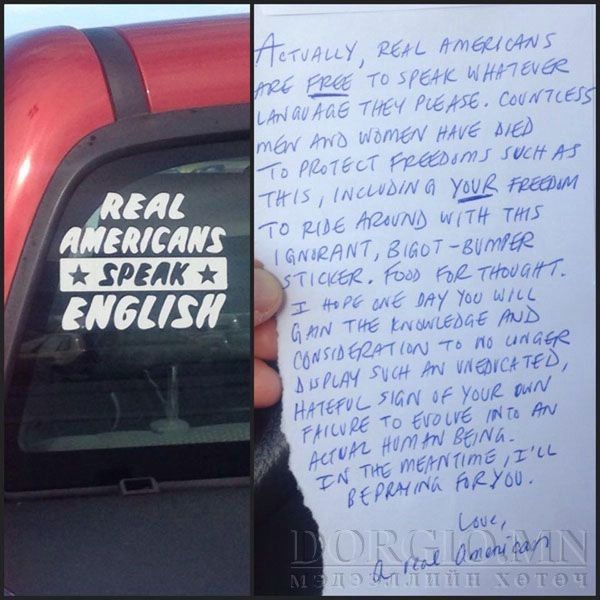 REAL
AMERICANS
★ SPEAK ★
ENGLISH
ACTUALLY, REAL AMERICANS
ARE FREE TO SPEAK WHATEVER
LANGUAGE THEY PLEASE. COUNTLESS
MEN AND WOMEN HAVE DIED
TO PROTECT FREEDOMS SUCH AS
THIS, INCLUDING YOUR FREEDOM
TO RIDE AROUND WITH THIS
IGNORANT, BIGOT-BUMPER
STICKER. FOOD FOR THOUGHT.
I HOPE ONE DAY YOU WILL
GAIN THE KNOWLEDGE AND
CONSIDERATION TO NO LONGER
DISPLAY SUCH AN UNEDUCATED,
HATEFUL SIGN OF YOUR OWN
FAILURE TO EVOLVE INTO AN
ACTUAL HUMAN BEING.
IN THE MEANTIME, I'LL
BE PRAYING FOR YOU.
Love,
a real American
DORGIO.MN
МЭДЭЭЛЛИЙН ХӨТӨЧ